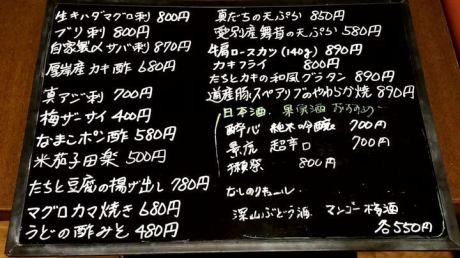 生キハダマグロ刺 800円
ブリ刺 800円
自家製〆サバ刺 870円
厚岸産 カキ酢 680円
真アジ刺 700円
梅ザーサイ 400円
なまこポン酢 580円
米茄子田楽 500円
たちと豆腐の揚げ出し 780円
マグロカマ焼き 680円
うどの酢みそ 480円
真だちの天ぷら 850円
愛別産舞茸の天ぷら 580円
牛肩ロースカツ(140g) 890円
カキフライ 800円
たちとカキの和風グラタン 890円
道産豚スペアリブのやわらか焼 890円
日本酒、果実酒 おすすめ
酔心 純米吟醸 700円
景虎 超辛口 700円
獺祭 800円
なしのリキュール
深山ぶどう酒 マンゴー梅酒
各550円